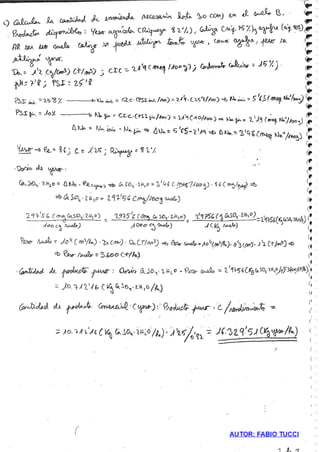 c) Calcular la cantidad de enmienda necesaria hasta 30 (cm) en el suelo B.
Productos disponibles: Yeso agrícola (Riqueza 82%), Caliza (riq. 75%), azufre (riq. 95%)
Al ser un suelo calizo se puede utilizar tanto yeso, como azufre, pero se
utilizará yeso.
Da = 1'2 (g/cm³) (t/m³) ; CIC = 21'9 (meq/100g) ; Carbonato cálcico = 15%.
pH = 7'8 ; PSI = 25'8
PSI ini = 25'8% → Na ini = CIC·(PSI ini/100) = 21'9·(25'8/100) ⇒ Na ini = 5'65 (meq Na⁺/100g)
PSI fin = 10% → Na fin = CIC·(PSI fin/100) = 21'9·(10/100) ⇒ Na fin = 2'19 (meq Na⁺/100g)
ΔNa = Na ini - Na fin ⇒ ΔNa = 5'65 - 2'19 ⇒ ΔNa = 3'46 (meq Na⁺/100g)
Yeso → Pe = 86 ; C = 1'25 ; Riqueza = 82%
- Dosis de yeso:
CaSO₄·2H₂O = ΔNa · Pe ⇒ CaSO₄·2H₂O = 3'46 (meq/100g) · 86 (mg/meq) ⇒
⇒ CaSO₄·2H₂O = 297'56 (mg/100g suelo)
297'56 (mg CaSO₄·2H₂O) / 100 (g suelo) = 2975'6 (mg CaSO₄·2H₂O) / 1000 (g suelo) = 2'9756 (g CaSO₄·2H₂O) / 1 (kg suelo) = 2'9756 (kg CaSO₄·2H₂O/t)
Peso suelo = 10⁴ (m²/ha) · Ds (m) · Da (T/m³) ⇒ Peso suelo = 10⁴ (m²/ha) · 0'3 (m) · 1'2 (t/m³) ⇒
⇒ Peso suelo = 3600 (t/ha)
- Cantidad de producto puro: Dosis CaSO₄·2H₂O · Peso suelo = 2'9756 (kg CaSO₄·2H₂O/t) · 3600 (t/ha)
= 10.712'16 (kg CaSO₄·2H₂O/ha)
Cantidad de producto comercial (yeso): Producto puro · C / rendimiento =
= 10.712'16 (kg CaSO₄·2H₂O/ha) · 1'25/0'82 = 16.329'51 (kg yeso/ha)
AUTOR: FABIO TUCCI